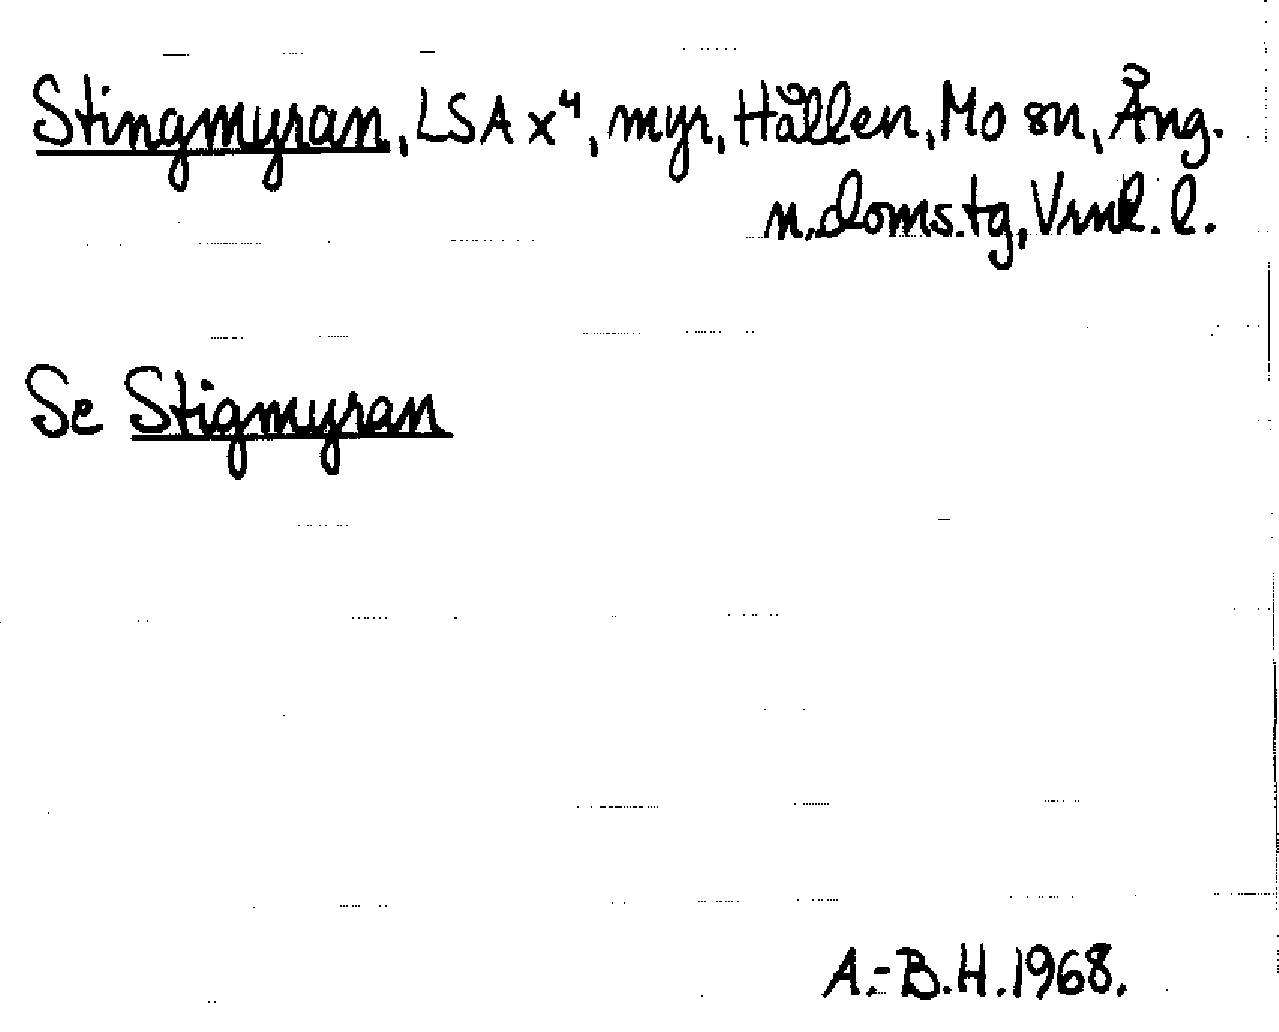 Stingmyran, LSA x⁴, myr, Hållen, Mo sn, Ång.
n.doms.tg, Vrml. l.
Se Stigmyran
A.-B.H. 1968.